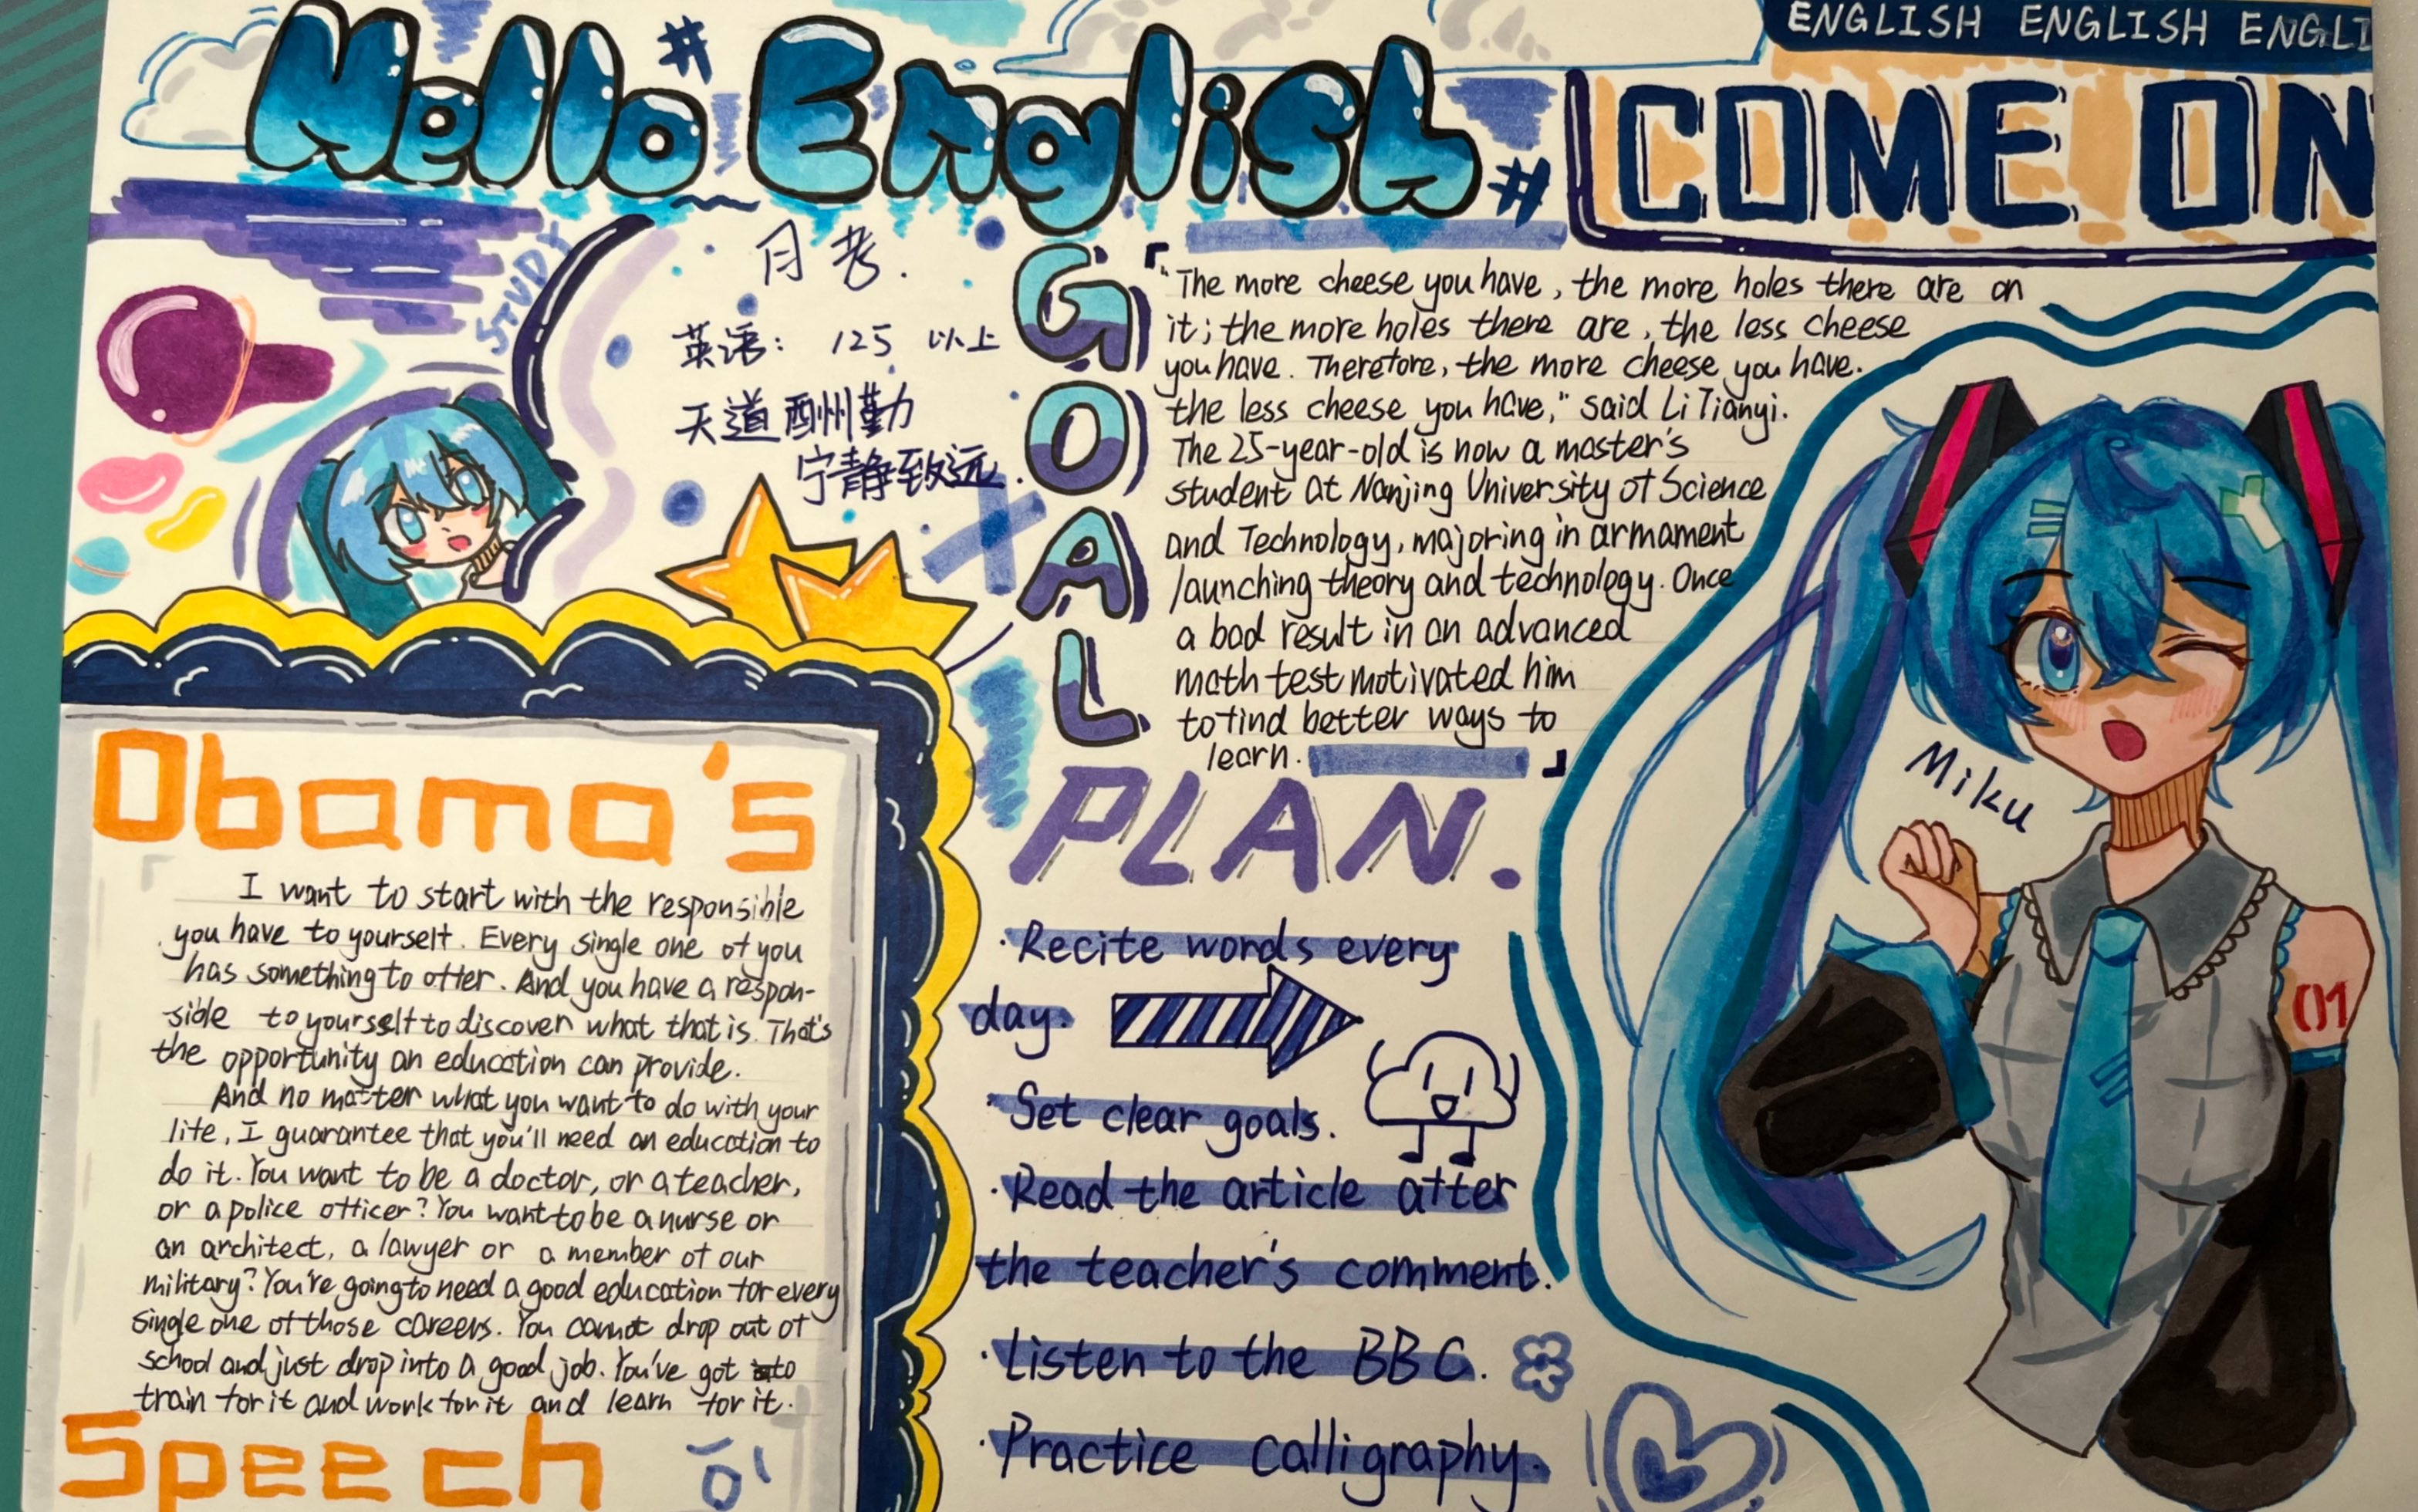 Hello English
#
#
ENGLISH ENGLISH ENGLI
COME ON
STUDY
月考.
英语: 125 以上
天道酬勤
宁静致远.
GOAL
「"The more cheese you have, the more holes there are on
it; the more holes there are, the less cheese
you have. Therefore, the more cheese you have.
the less cheese you have," said Li Tianyi.
The 25-year-old is now a master's
student at Nanjing University of Science
and Technology, majoring in armament
launching theory and technology. Once
a bad result in an advanced
math test motivated him
to find better ways to
learn.」
Miku
01
Obama's
I want to start with the responsible
you have to yourself. Every single one of you
has something to offer. And you have a respon-
sible to yourself to discover what that is. That's
the opportunity an education can provide.
And no matter what you want to do with your
life, I guarantee that you'll need an education to
do it. You want to be a doctor, or a teacher,
or a police officer? You want to be a nurse or
an architect, a lawyer or a member of our
military? You're going to need a good education for every
single one of those careers. You cannot drop out of
school and just drop into a good job. You've got to
train for it and work for it and learn for it.
Speech
PLAN.
· Recite words every
day.
· Set clear goals.
· Read the article after
the teacher's comment.
· Listen to the BBC.
· Practice calligraphy.